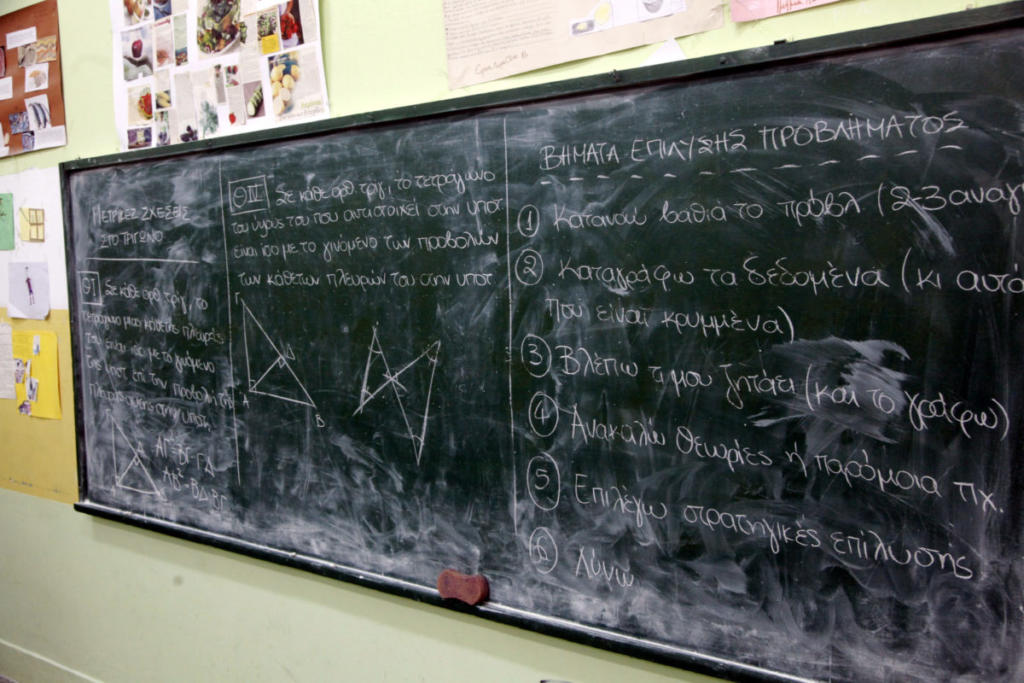 ΜΕΤΡΙΚΕΣ ΣΧΕΣΕΙΣ
ΣΤΟ ΤΡΙΓΩΝΟ
ΘΙ Σε κάθε ορθ τριγ. το
τετράγωνο μιας κάθετης πλευράς
του είναι ίσο με το γινόμενο
της υποτ. επί την προβολή της
πλευράς αυτής στην υποτ.
ΑΓ²=ΒΓ·ΓΔ
ΑΒ²=ΒΔ·ΒΓ
ΘΙΙ Σε κάθε ορθ. τριγ. το τετράγωνο
του ύψους του που αντιστοιχεί στην υποτ
είναι ίσο με το γινόμενο των προβολών
των κάθετων πλευρών του στην υποτ.
Γ
Δ
Α
Β
ΒΗΜΑΤΑ ΕΠΙΛΥΣΗΣ ΠΡΟΒΛΗΜΑΤΟΣ
1 Κατανοώ βαθιά το πρόβλ (2-3 αναγ
2 Καταγράφω τα δεδομένα (κι αυτά
που είναι κρυμμένα)
3 Βλέπω τι μου ζητάει (και το γράφω)
4 Ανακαλώ θεωρίες ή παρόμοια πχ.
5 Επιλέγω στρατηγικές επίλυσης
6 Λύνω